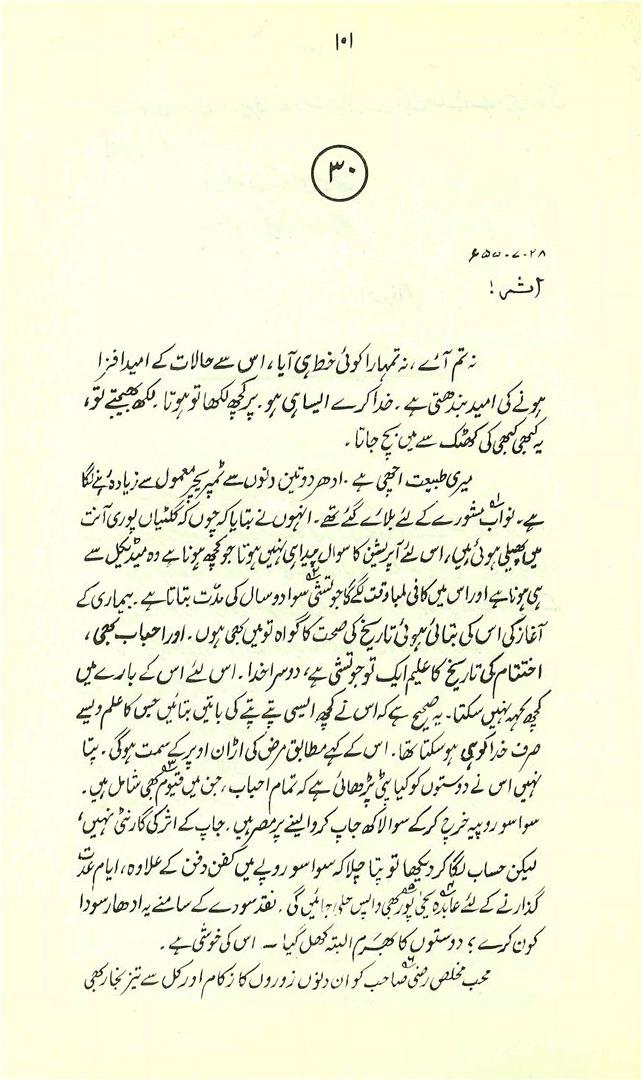 ۱۰۱
۳۰
۲۸-۷-۵۵ء
اشہر!
نہ تم آئے، نہ تمہارا کوئی خط ہی آیا، اس سے حالات کے امید افزا
ہونے کی امید بندھتی ہے۔ خدا کرے ایسا ہی ہو۔ پر کچھ لکھا تو ہوتا۔ لکھ بھیجتے تو،
یہ کبھی کبھی کی کھٹک سے میں بچ جاتا۔
میری طبیعت اچھی ہے۔ ادھر دو تین دنوں سے ٹمپریچر معمول سے زیادہ رہنے لگا
ہے۔ نواب۱ مشورے کے لئے بلائے گئے تھے۔ انہوں نے بتایا کہ چوں کہ گلٹیاں پوری آنت
میں پھیلی ہوئی ہیں، اس لئے آپریشن کا سوال پیدا ہی نہیں ہوتا جو کچھ ہونا ہے وہ میڈیکل سے
ہی ہونا ہے اور اس میں کافی لمبا وقت لگے گا جوتشی۲ سوا دو سال کی مدّت بتاتا ہے۔ بیماری کے
آغاز کی اس کی بتائی ہوئی تاریخ کی صحت کا گواہ تو میں بھی ہوں۔ اور احباب بھی،
اختتام کی تاریخ کا علیم ایک تو جوتشی ہے، دوسرا خدا۔ اس لئے اس کے بارے میں
کچھ کہہ نہیں سکتا۔ یہ صحیح ہے کہ اس نے کچھ ایسی پتے پتے کی باتیں بتائیں جس کا علم ویسے
صرف خدا کو ہی ہو سکتا تھا۔ اس کے کہے مطابق مرض کی اڑان اوپر کے سمت ہوگی۔ پتا
نہیں اس نے دوستوں کو کیا پٹی پڑھائی ہے کہ تمام احباب، جن میں قیوم۳ بھی شامل ہیں۔
سوا سو روپیہ خرچ کر کے سوا لاکھ جاپ کروا لینے پر مصر ہیں۔ جاپ کے اثر کی گارنٹی نہیں،
لیکن حساب لگا کر دیکھا تو پتا چلا کہ سوا سو روپے میں کفن دفن کے علاوہ، ایام عدت
گذارنے کے لئے عابدہ۴ یحییٰ پور۵ بھی واپس چلی جائیں گی۔ نقد سودے کے سامنے یہ ادھار سودا
کون کرے؟ دوستوں کا بھرم البتہ کھل گیا — اس کی خوشی ہے۔
محب مخلص رضی۶ صاحب کو ان دنوں زوروں کا زکام اور کل سے تیز بخار بھی